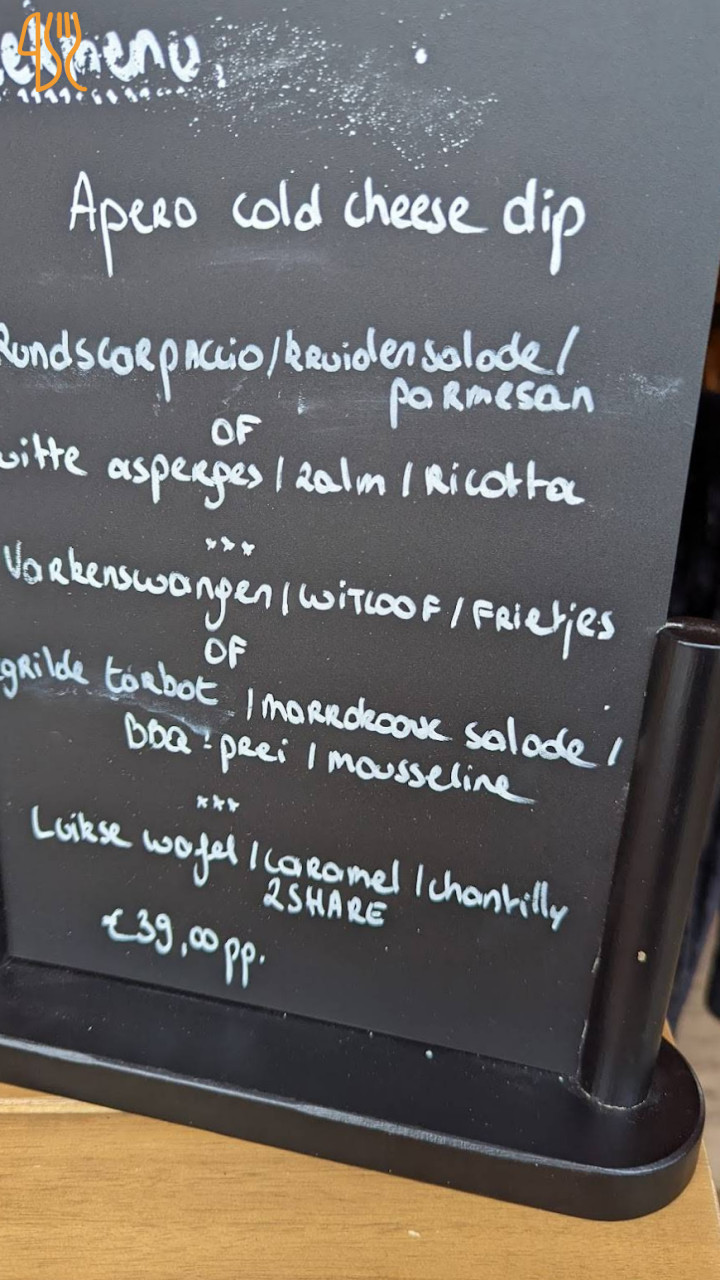 menu
Apero cold cheese dip
Rundscarpaccio/kruidensalade/
parmesan
OF
witte asperges / zalm / Ricotta
***
Varkenswangen / WITLOOF / FRietjes
OF
grilde tarbot / marrokaanse salade /
BBQ-prei / mousseline
***
Luikse wafel / caramel / chantilly
2SHARE
€39,00 pp.